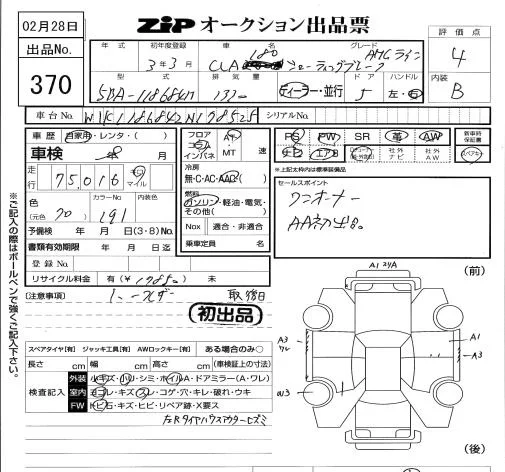 02月28日
ZiP オークション出品票
出品No.
370
年式 初年度登録 車名 グレード
3年3月 CLA 180 シューティングブレーク AMGライン
型式 排気量 ドア ハンドル
5BA-118684M 1330 ディーラー・並行 5 左・右
評価点
4
内装
B
車台No. W1K1186842N178525 シリアルNo.
車歴 自家用・レンタ・( )
車検 年 月
走行 75,016 キロ マイル
色 (元色) カラーNo. 内装色
191
予備検 年 月 日(3・8)No.
書類有効期限 年 月 日迄
登録No.
リサイクル料金 有(¥ ) 未
フロア コラム インパネ
AT・MT 速
冷房
無・C・AC・AAC
燃料
ガソリン・軽油・電気・その他( )
Nox 適合・非適合
乗車定員 名
PS PW SR 革 AW
ナビ エアB 社外ナビ 社外AW
新車時保証書
スペアキー
※上記太枠内は標準装備品
セールスポイント
ワンオーナー
AA初出品。
[注意事項]
取後日
初出品
※ご記入の際はボールペンで強くご記入下さい。
スペアタイヤ[有] ジャッキ工具[有] AWロックキー[有] ある場合のみ○
長さ cm 幅 cm 高さ cm (車検証上の寸法)
検査記入
外装 小キズ・凹リ・シミ・ホイルA・ドアミラー(A・ワレ)
室内 ヨゴレ・キズ・スレ・コゲ・穴・キレ・破れ・ウキ
FW トビ石・キズ・ヒビ・リペア跡・X要ス
左Rタイヤハウスアウターヒズミ
(前)
A1
A3
A1
A3
W3
(後)